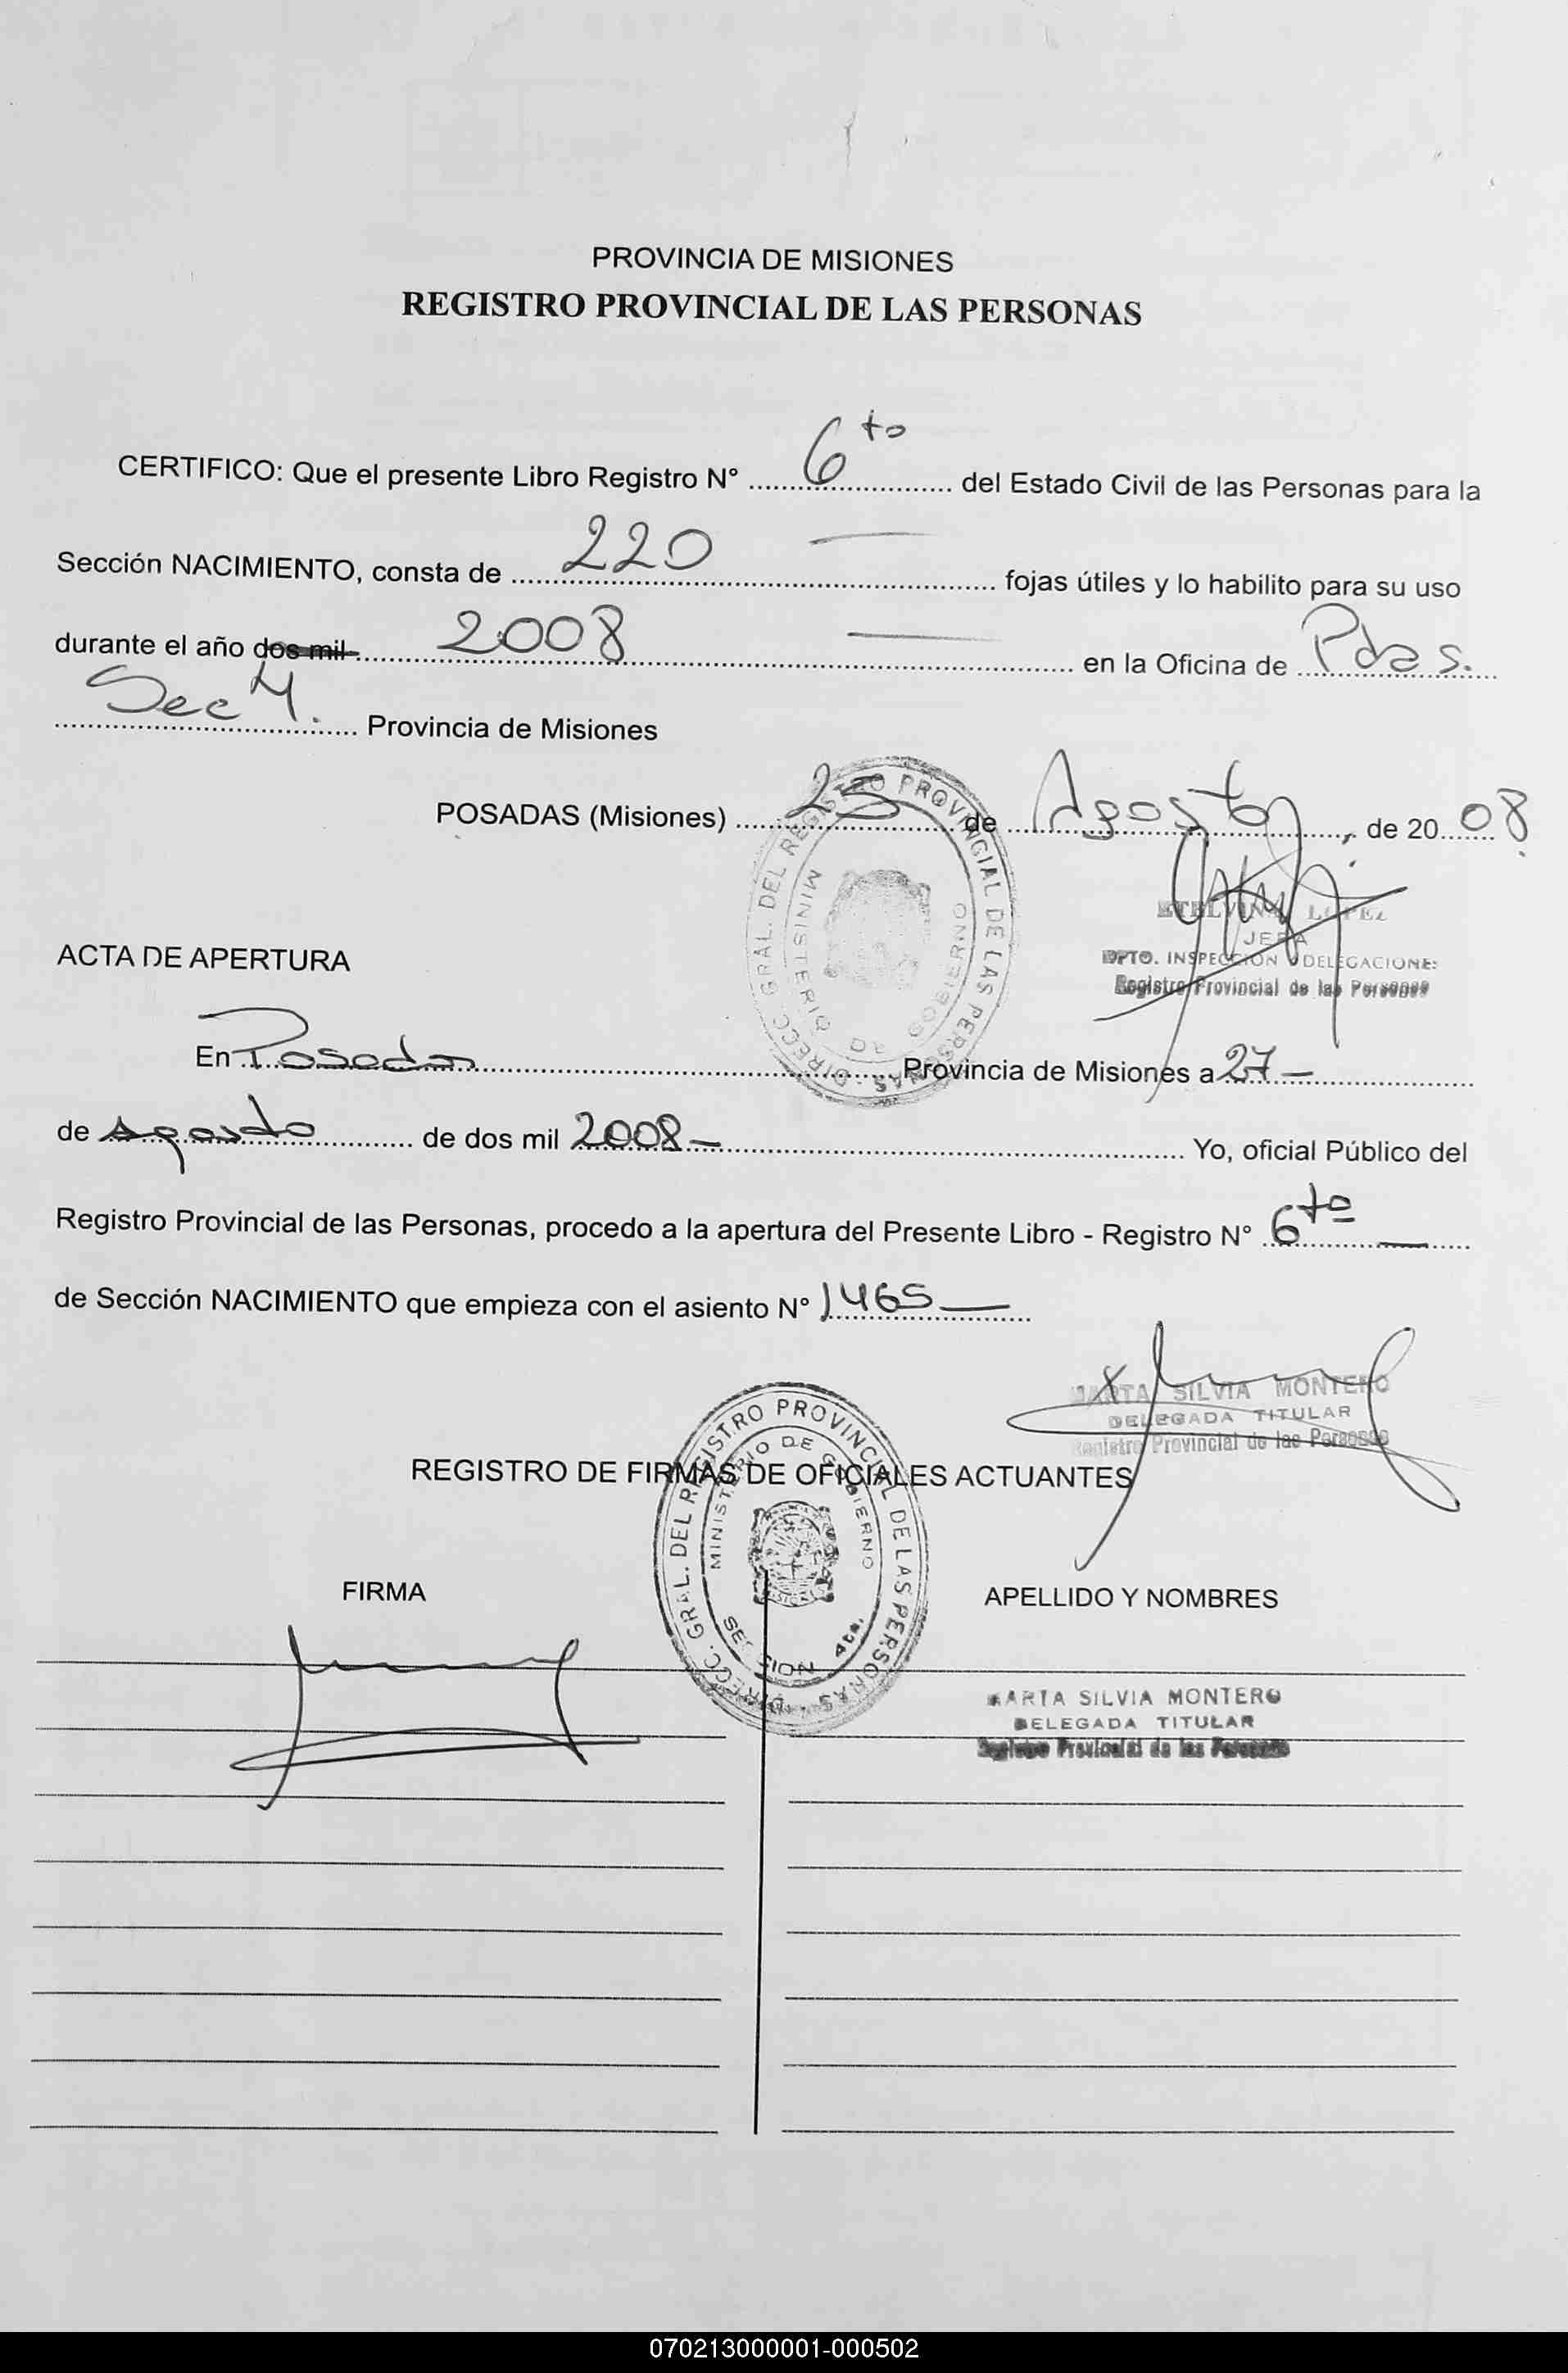 PROVINCIA DE MISIONES
REGISTRO PROVINCIAL DE LAS PERSONAS
CERTIFICO: Que el presente Libro Registro N° 6to del Estado Civil de las Personas para la
Sección NACIMIENTO, consta de 220 fojas útiles y lo habilito para su uso
durante el año dos mil 2008 en la Oficina de Pdas.
Sec 4. Provincia de Misiones
POSADAS (Misiones) 25 de Agosto, de 20 08
DIRECC. GRAL. DEL REGISTRO PROVINCIAL DE LAS PERSONAS
MINISTERIO DE GOBIERNO
ETELVINA LOPEZ
JEFA
DPTO. INSPECCION DELEGACIONES
Registro Provincial de las Personas
ACTA DE APERTURA
En Posadas Provincia de Misiones a 27 —
de agosto de dos mil 2008 — Yo, oficial Público del
Registro Provincial de las Personas, procedo a la apertura del Presente Libro - Registro N° 6to —
de Sección NACIMIENTO que empieza con el asiento N° 1465 —
MARTA SILVIA MONTERO
DELEGADA TITULAR
Registro Provincial de las Personas
DIRECC. GRAL. DEL REGISTRO PROVINCIAL DE LAS PERSONAS
MINISTERIO DE GOBIERNO
SECCION 4ta.
REGISTRO DE FIRMAS DE OFICIALES ACTUANTES
FIRMA APELLIDO Y NOMBRES
MARTA SILVIA MONTERO
DELEGADA TITULAR
Registro Provincial de las Personas
070213000001-000502